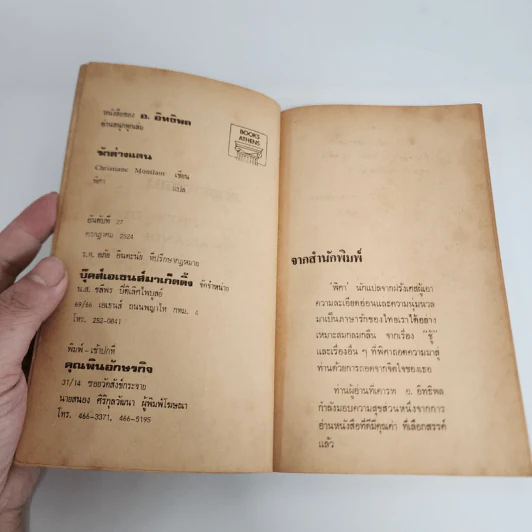 หนังสือของ อ. อิทธิพล
อ่านสนุกทุกเล่ม
BOOKS
ATHENS
รักต่างแดน
Christiane Montlaur เขียน
พิศา แปล
อันดับที่ 27
กรกฎาคม 2524
ร.ต. อภัย อินตะนัย ที่ปรึกษากฎหมาย
บุ๊คส์เอเธนส์มาเก็ตติ้ง จัดจำหน่าย
น.ส. ชลีพร ปิติเลิศไพบูลย์
69/66 เอเธนส์ ถนนพญาไท กทม. 4
โทร. 252-0841
พิมพ์ - เข้าปกที่
คุณพินอักษรกิจ
31/14 ซอยวัดสังข์กระจาย
นายสนอง ศิริกุลวัฒนา ผู้พิมพ์โฆษณา
โทร. 466-3371, 466-5195
จากสำนักพิมพ์
'พิศา' นักแปลจากฝรั่งเศสผู้เอา
ความละเอียดอ่อนและความนุ่มนวล
มาเป็นภาษารักของไทยเราได้อย่าง
เหมาะสมกลมกลืน จากเรื่อง "ชู้"
และเรื่องอื่น ๆ ที่พิศาถอดความมาสู่
ท่านด้วยการถอดจากจิตใจของเธอ
ท่านผู้อ่านที่เคารพ อ. อิทธิพล
กำลังมอบความสุขส่วนหนึ่งจากการ
อ่านหนังสือที่ดีมีคุณค่า ที่เลือกสรรค์
แล้ว